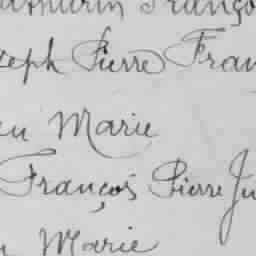 athurin Franço
seph Pierre Fran
en Marie
François Pierre Ju
Marie